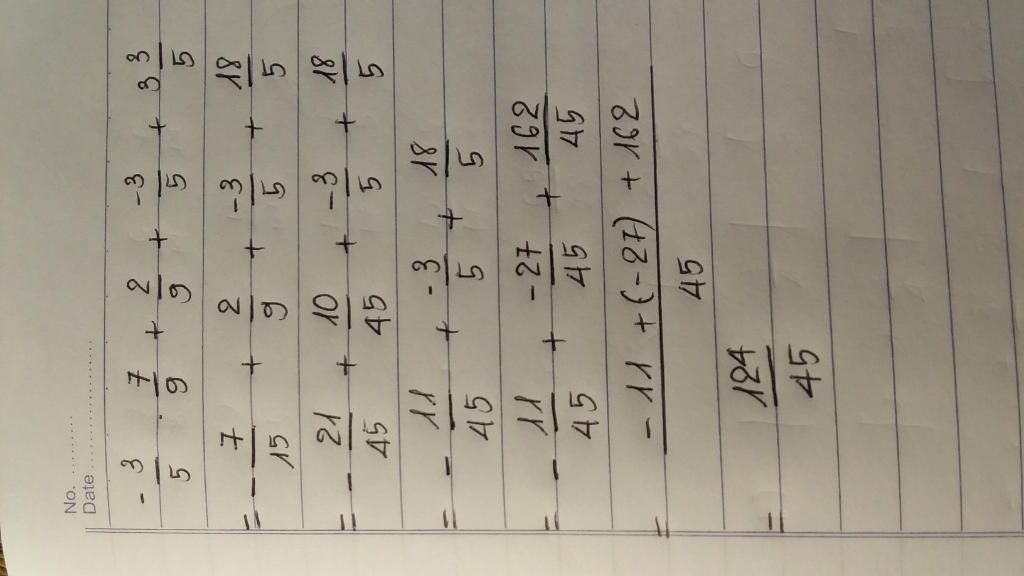 No. ..........
Date ..................
- 3/5 · 7/9 + 2/9 + -3/5 + 3 3/5
= - 7/15 + 2/9 + -3/5 + 18/5
= - 21/45 + 10/45 + -3/5 + 18/5
= - 11/45 + -3/5 + 18/5
= - 11/45 + -27/45 + 162/45
= (-11 + (-27) + 162)/45
= 124/45